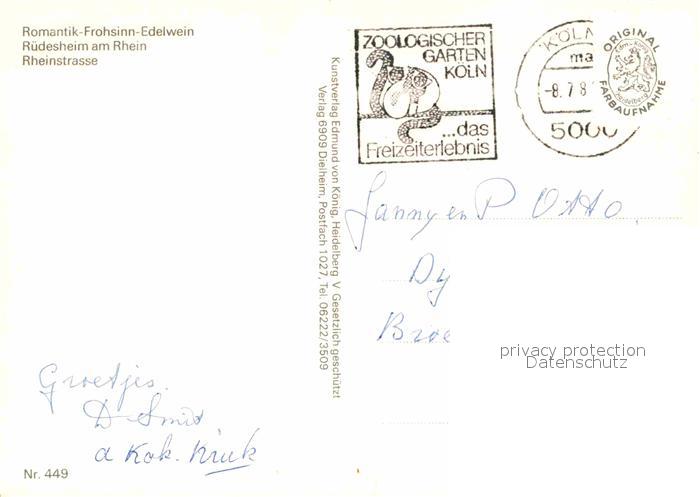 Romantik-Frohsinn-Edelwein
Rüdesheim am Rhein
Rheinstrasse
ZOOLOGISCHER
GARTEN
KÖLN
...das
Freizeiterlebnis
KÖLN
ma
-8.7.8
5000
ORIGINAL
FARBAUFNAHME
Kunstverlag Edmund von König, Heidelberg V Gesetzlich geschützt
Verlag 6909 Dielheim, Postfach 1027, Tel. 06222/3509
en P Otto
Dy
Broe
privacy protection
Datenschutz
Groetjes.
D Smit
a Kok. Kruk
Nr. 449